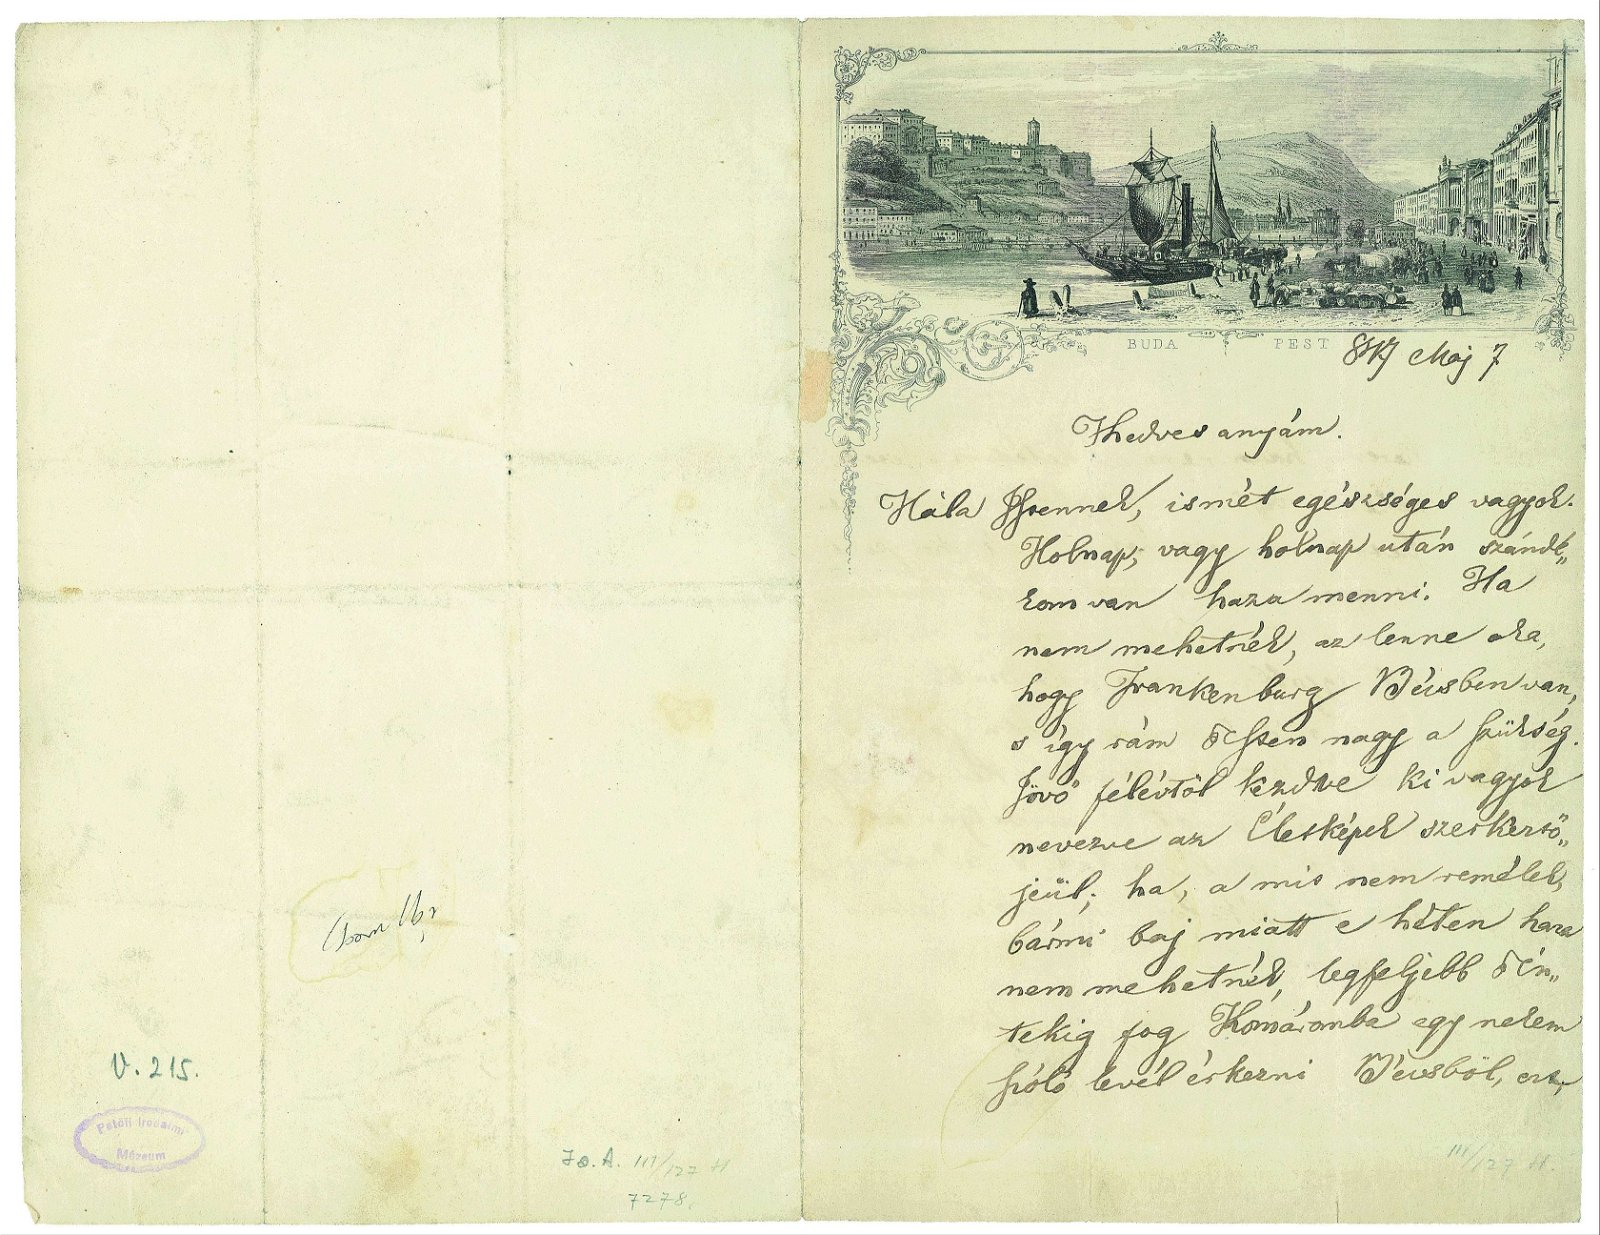 V. 215.
Petőfi Irodalmi
Múzeum
Jó. A. III/127 H
7278.
BUDA PEST
847 Maj 7
Kedves anyám.
Hála Istennek, ismét egészséges vagyok.
Holnap, vagy holnap után szándé„
kom van haza menni. Ha
nem mehetnék, az lenne oka,
hogy Frankenburg Bécsben van,
s így rám itten nagy a szükség.
Jövő félévtöl kezdve ki vagyok
nevezve az Életképek szerkesztő„
jeül; ha, a mit nem remélek,
bármi baj miatt e héten haza
nem mehetnék, legfeljebb Pén„
tekig fog Komáromba egy nekem
szóló levél érkezni Bécsböl, ezt,
III/127 H.